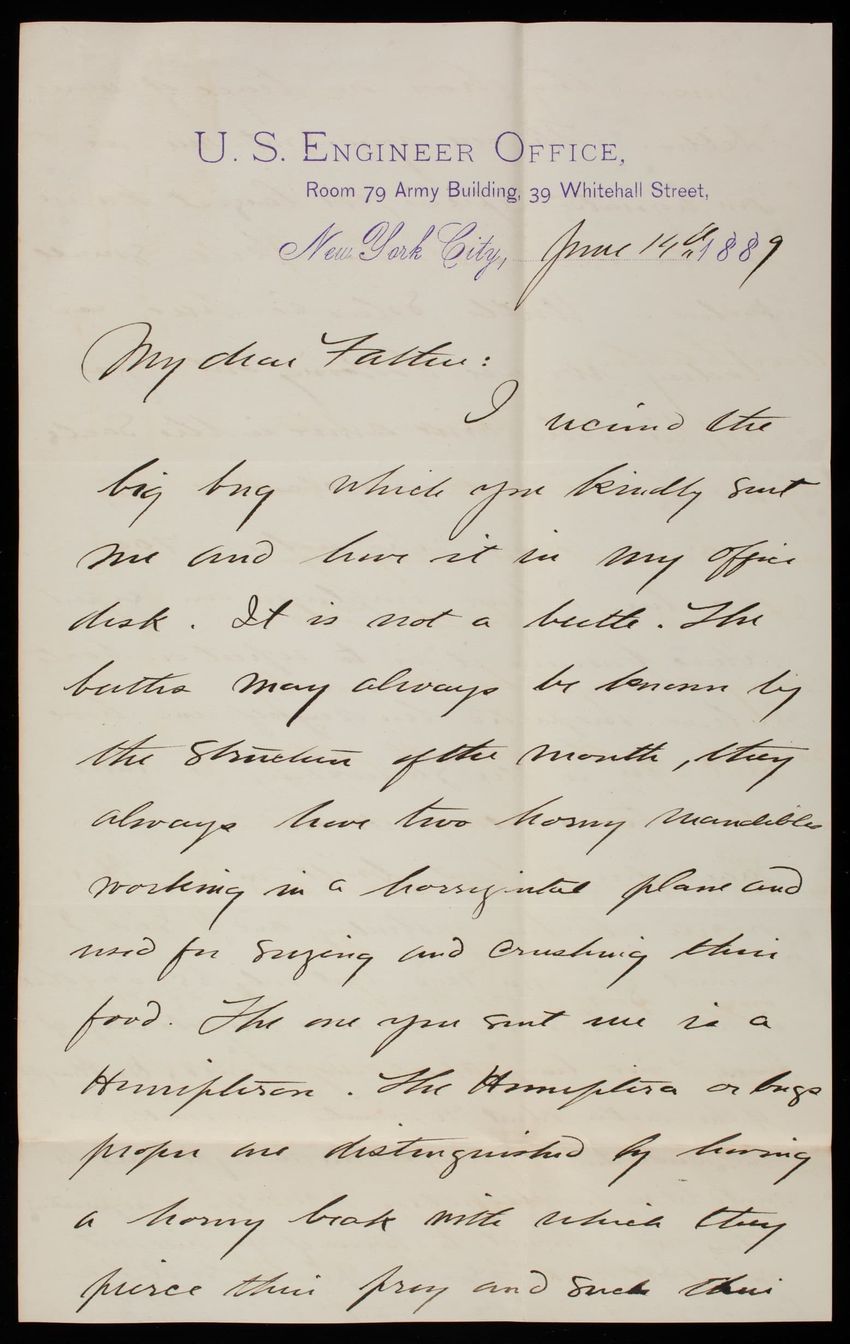 U. S. ENGINEER OFFICE,
Room 79 Army Building, 39 Whitehall Street,
New York City, June 14th 1889
My dear Father:
I received the
big bug which you kindly sent
me and have it in my office
desk. It is not a beetle. The
beetles may always be known by
the structure of the mouth, they
always have two horny mandibles
working in a horizontal plane and
used for seizing and crushing their
food. The one you sent me is a
Hemipteron. The Hemiptera or bugs
proper are distinguished by having
a horny beak with which they
pierce their prey and suck their